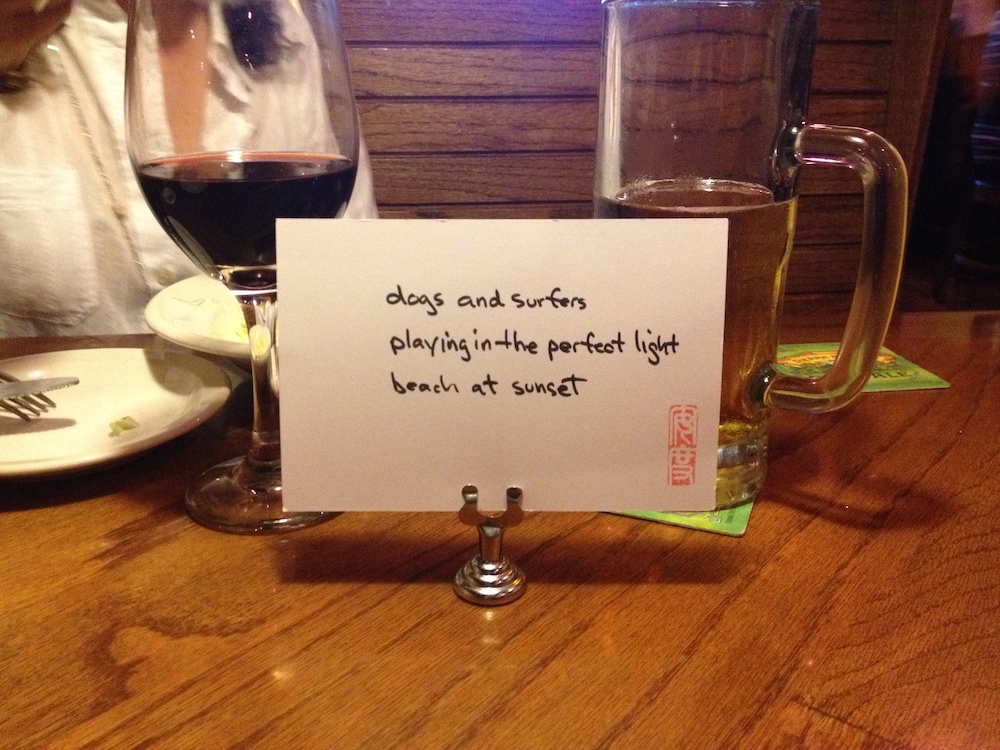 dogs and surfers
playing in the perfect light
beach at sunset